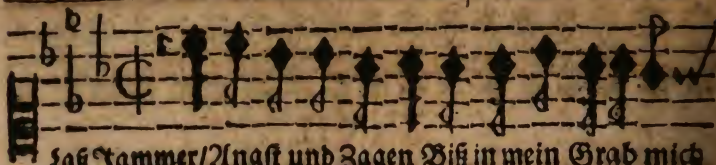 Laß Jammer/Angſt und Zagen Biß in mein Grab mich